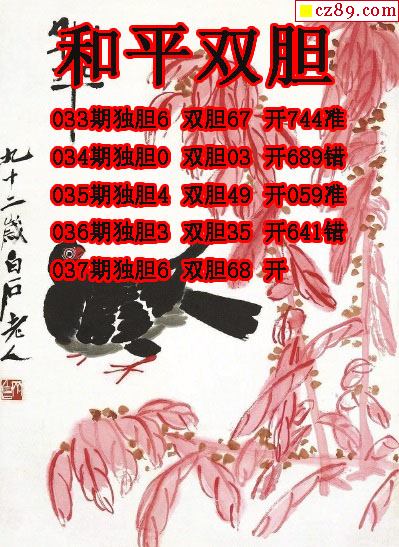 cz89.com
和平
和平双胆
033期独胆6 双胆67 开744准
034期独胆0 双胆03 开689错
035期独胆4 双胆49 开059准
036期独胆3 双胆35 开641错
037期独胆6 双胆68 开
九十二歲白石老人